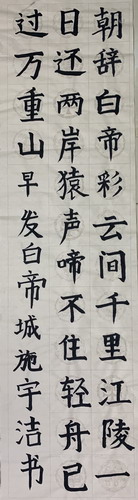 朝辞白帝彩云间千里江陵一
日还两岸猿声啼不住轻舟已
过万重山早发白帝城施宇洁书